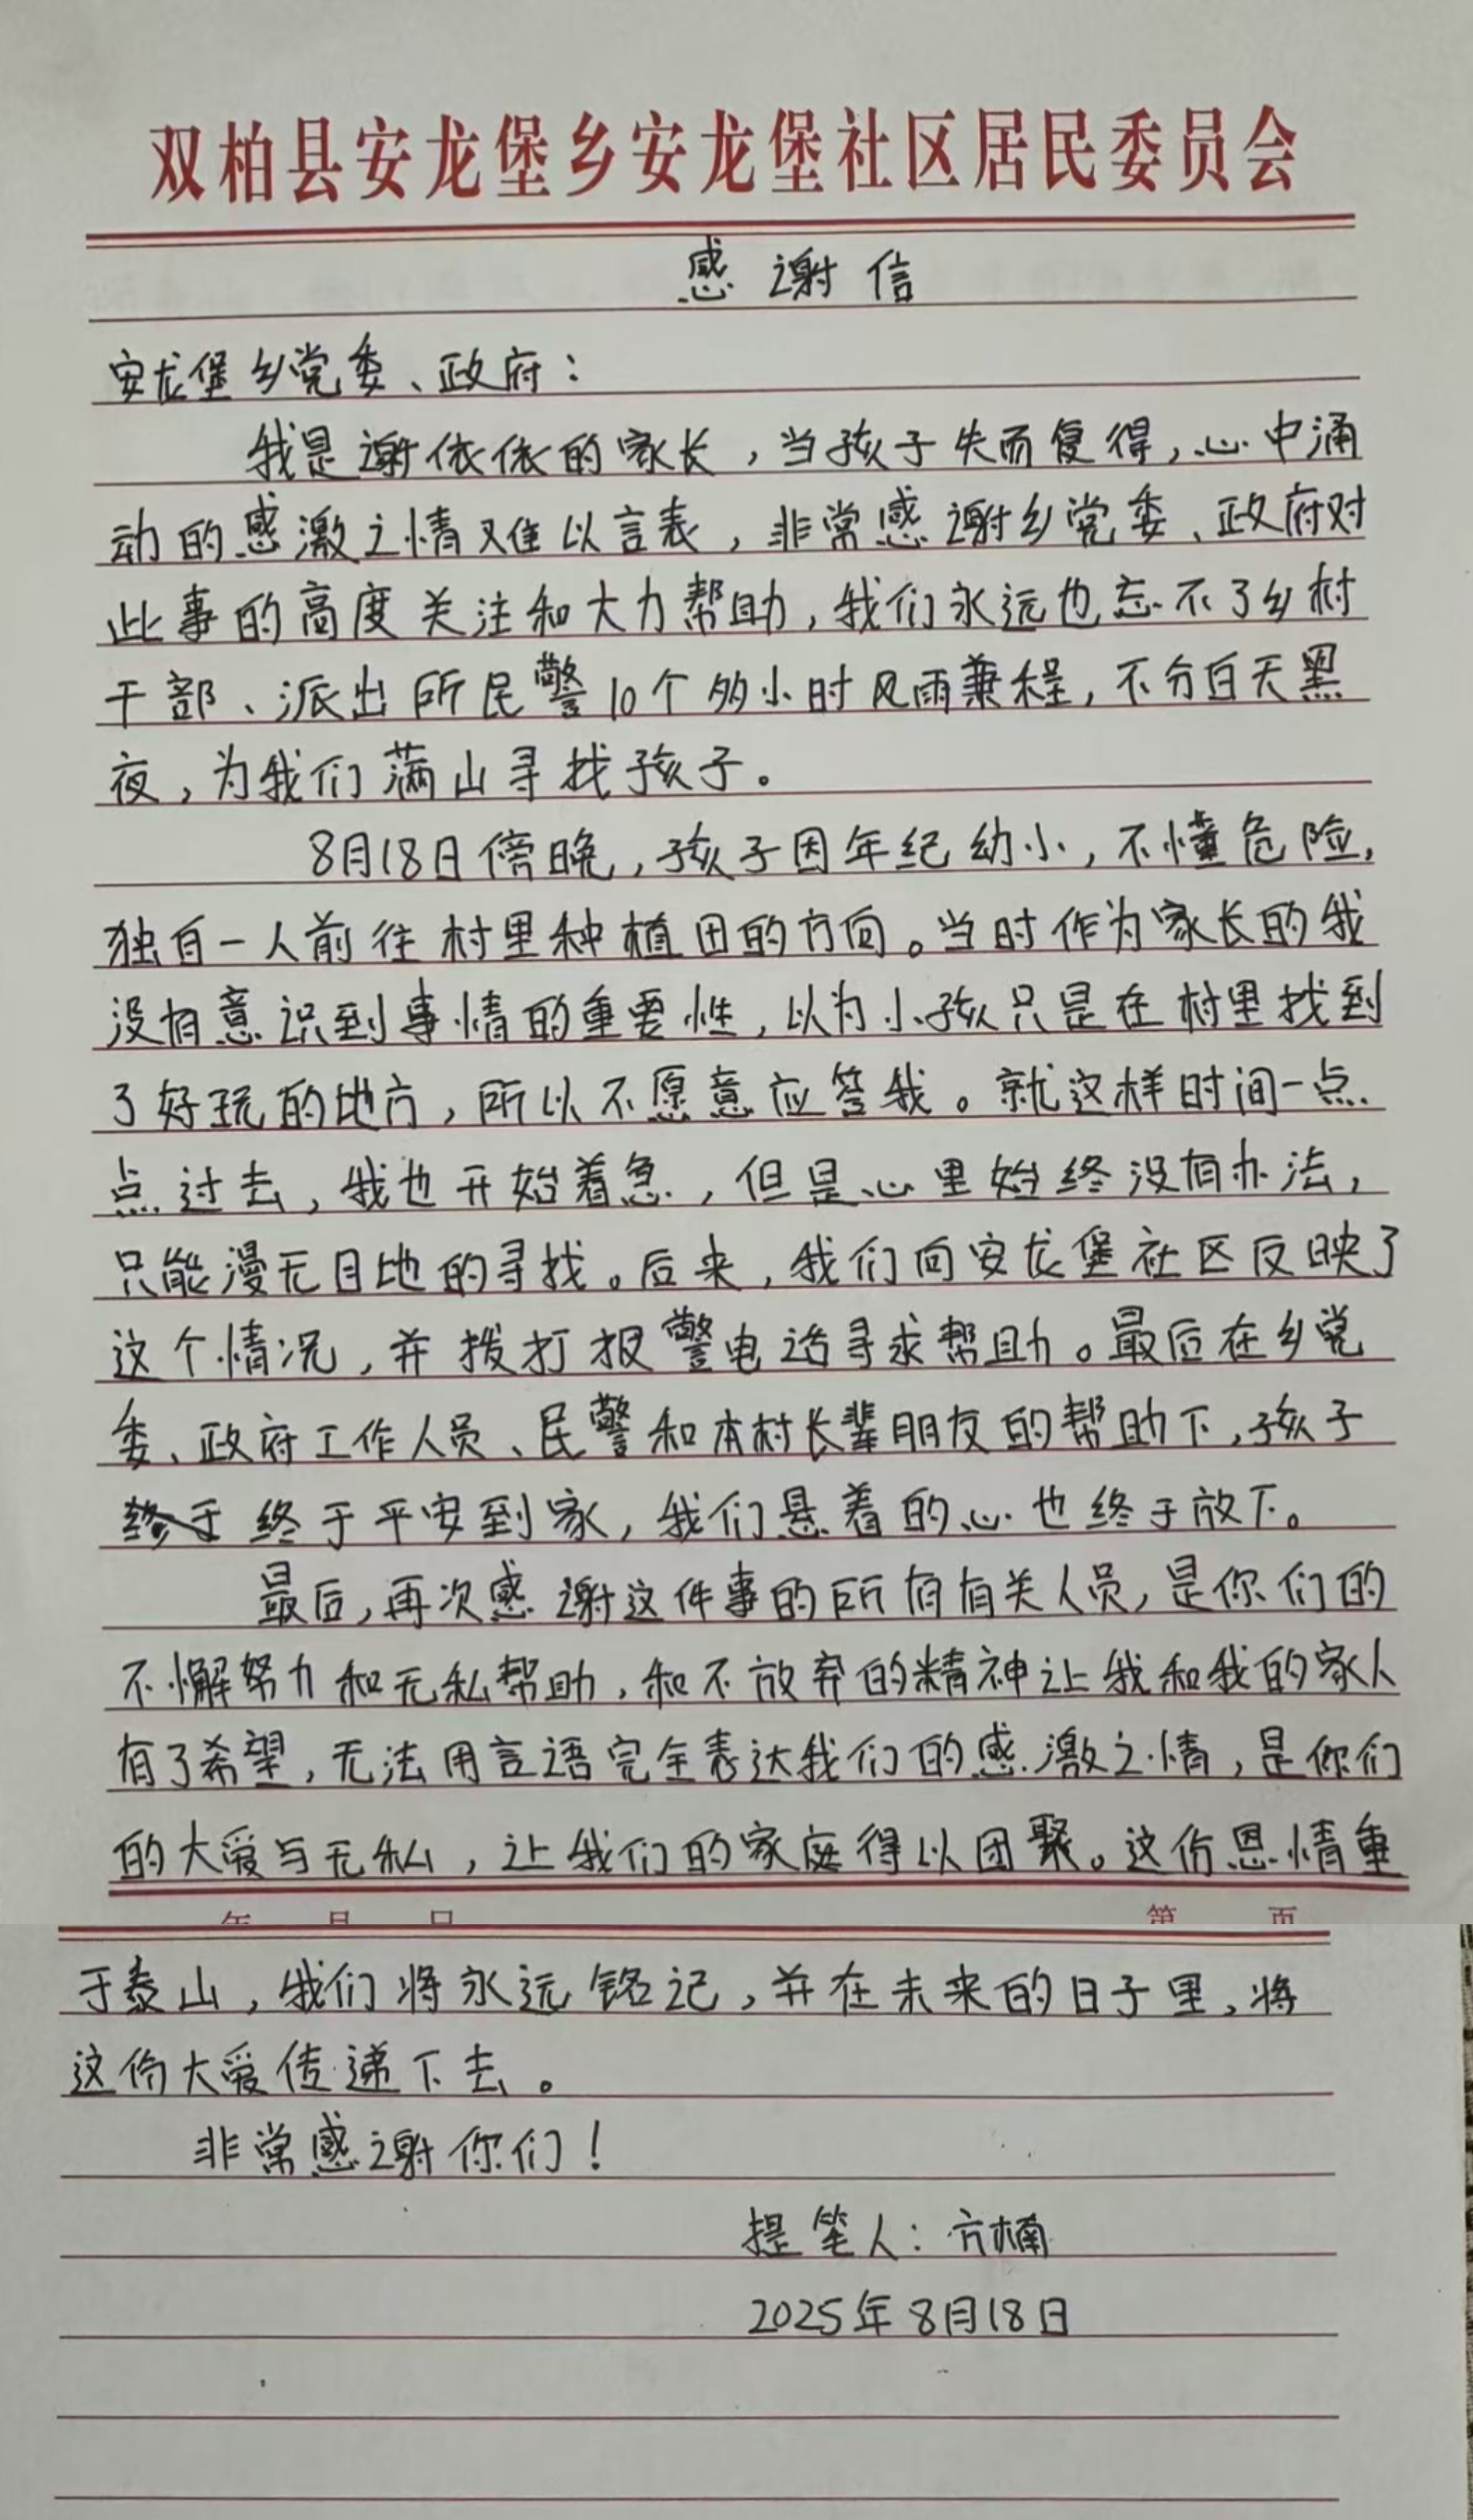 双柏县安龙堡乡安龙堡社区居民委员会
感谢信
安龙堡乡党委、政府：
我是谢依依的家长，当孩子失而复得，心中涌
动的感激之情难以言表，非常感谢乡党委、政府对
此事的高度关注和大力帮助，我们永远也忘不了乡村
干部、派出所民警10个多小时风雨兼程，不分白天黑
夜，为我们满山寻找孩子。
8月18日傍晚，孩子因年纪幼小，不懂危险，
独自一人前往村里种植田的方向。当时作为家长的我
没有意识到事情的重要性，以为小孩只是在村里找到
了好玩的地方，所以不愿意应答我。就这样时间一点
点过去，我也开始着急，但是心里始终没有办法，
只能漫无目地的寻找。后来，我们向安龙堡社区反映了
这个情况，并拨打报警电话寻求帮助。最后在乡党
委、政府工作人员、民警和本村长辈朋友的帮助下，孩子
终于平安到家，我们悬着的心也终于放下。
最后，再次感谢这件事的所有有关人员，是你们的
不懈努力和无私帮助，和不放弃的精神让我和我的家人
有了希望，无法用言语完全表达我们的感激之情，是你们
的大爱与无私，让我们的家庭得以团聚。这份恩情重
年 月 日 第 页
于泰山，我们将永远铭记，并在未来的日子里，将
这份大爱传递下去。
非常感谢你们！
提笔人：方楠
2025年8月18日